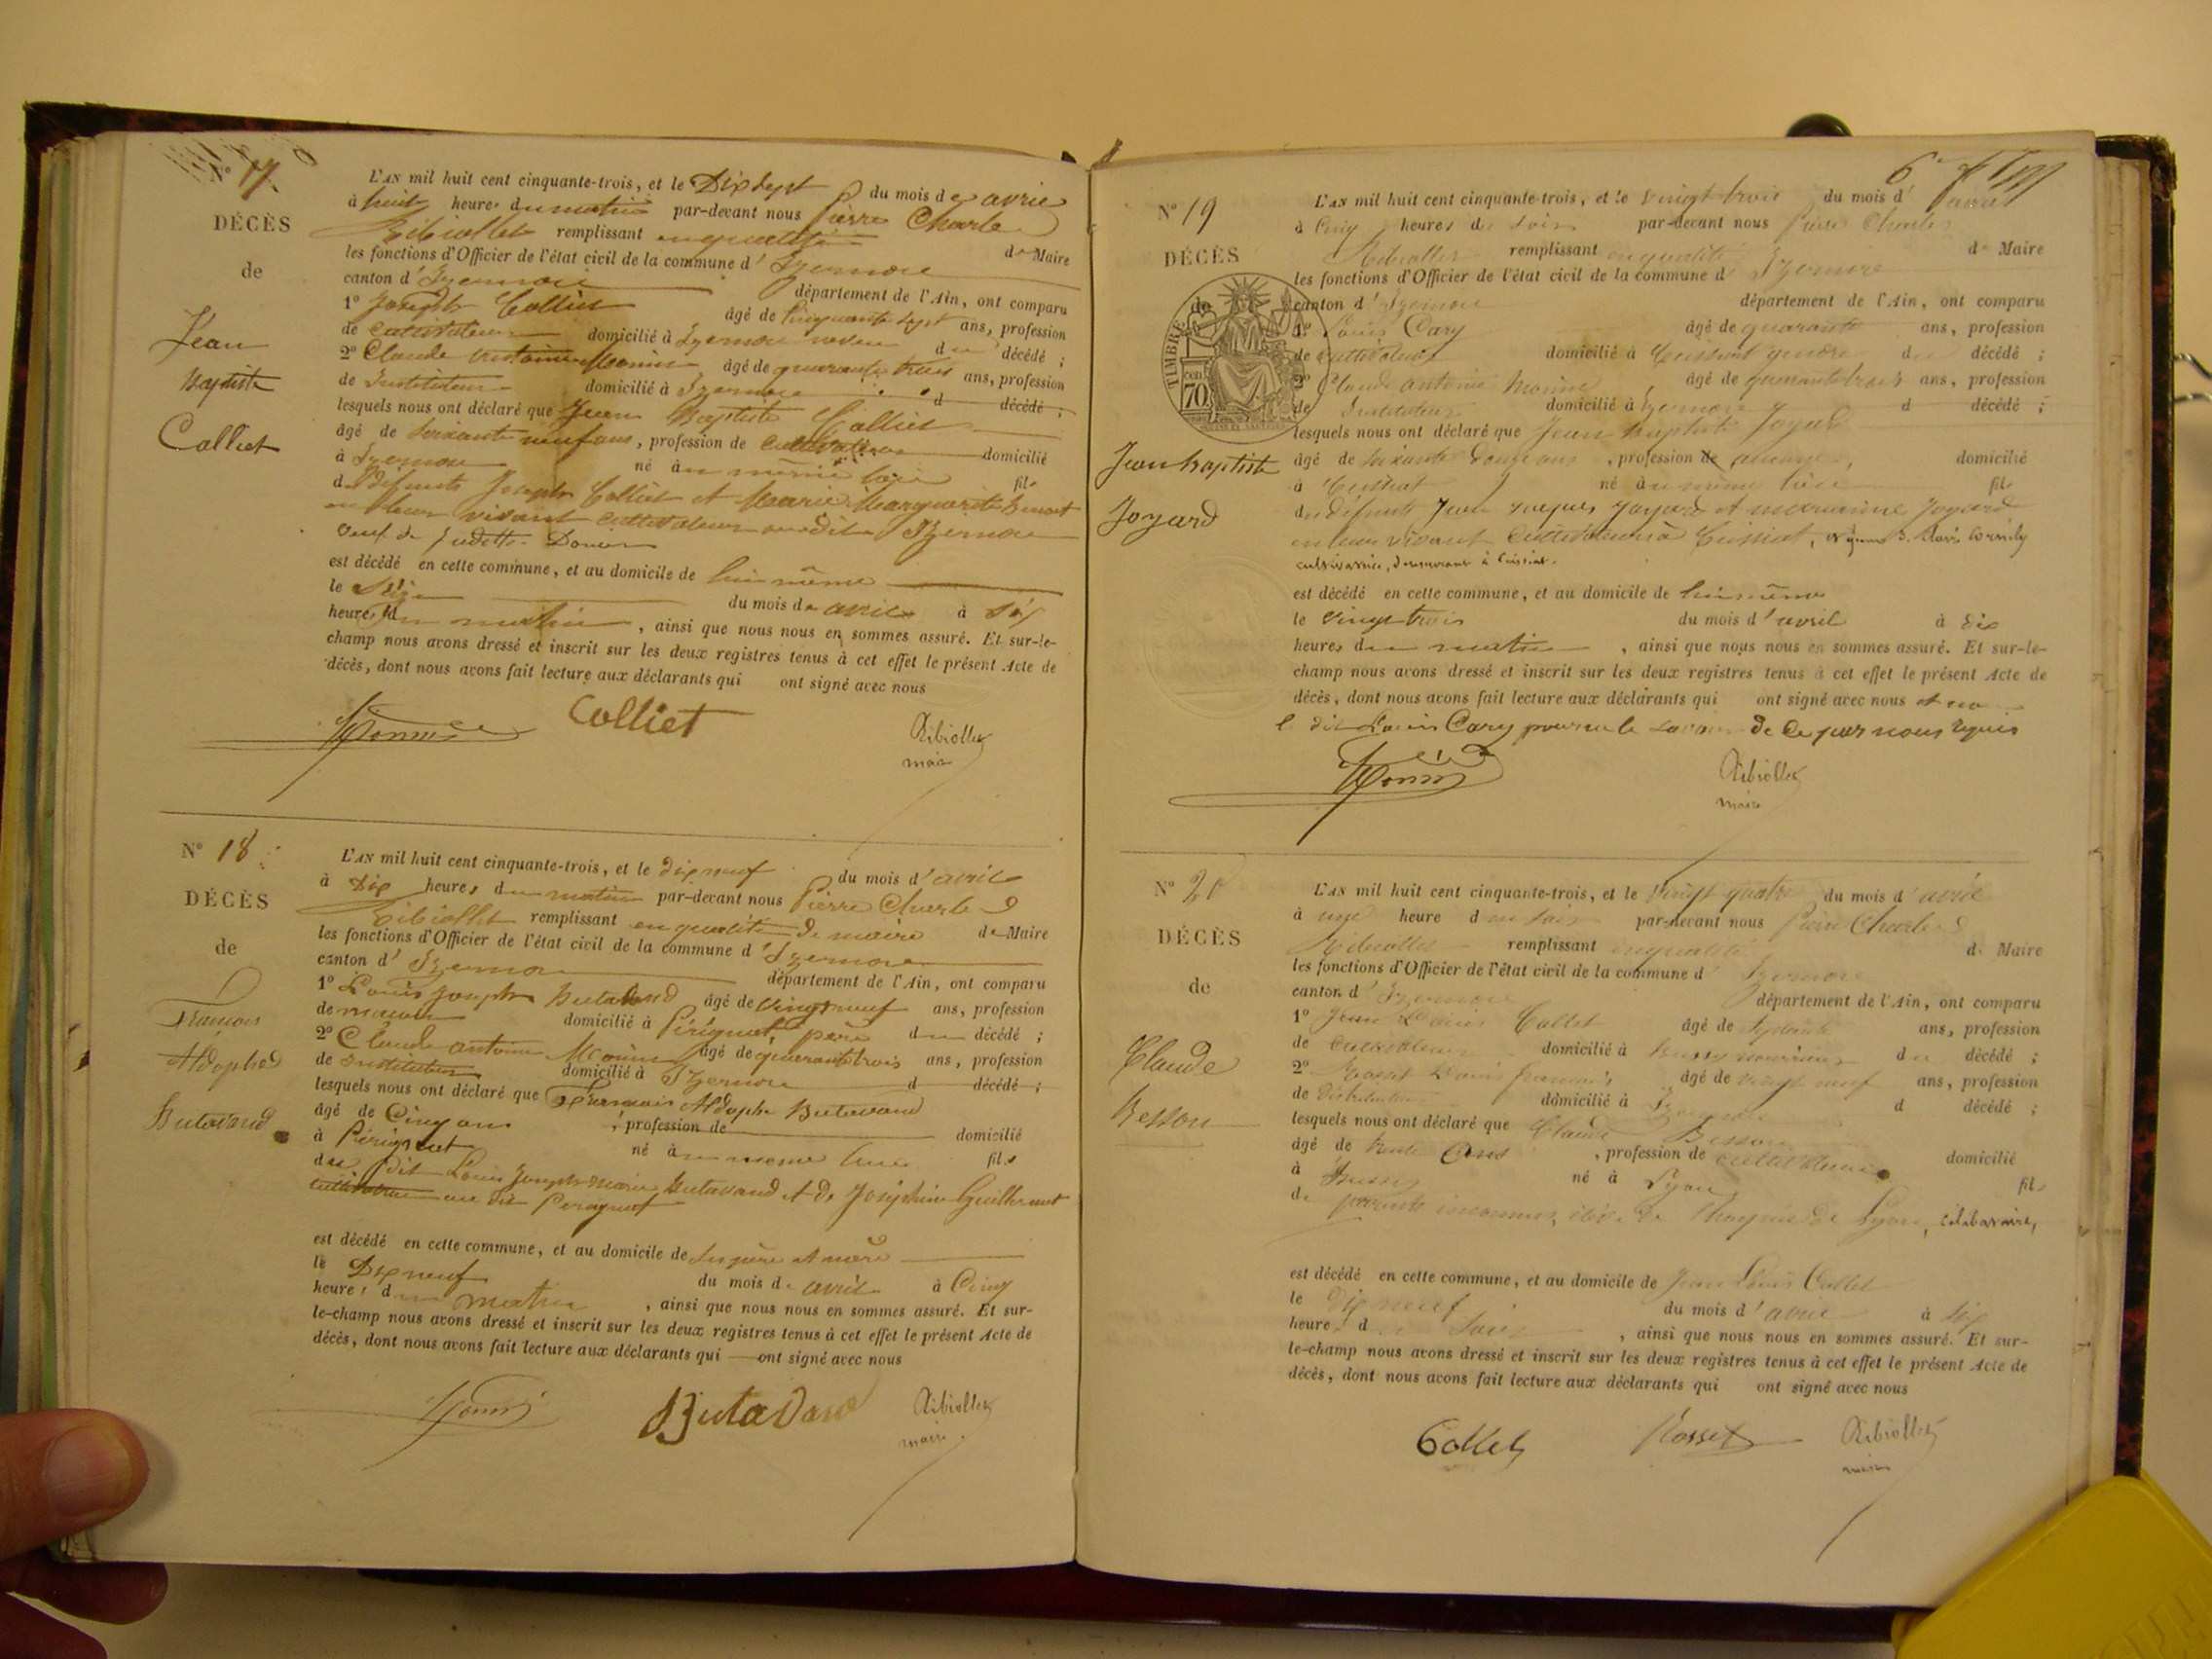 N° 17
DÉCÈS
de
Jean
Baptiste
Colliet
L'AN mil huit cent cinquante-trois, et le Dix sept du mois de avril
à huit heures du matin par-devant nous Pierre Charles
Ribiollet remplissant en qualité de Maire
les fonctions d'Officier de l'état civil de la commune d'Izernore
canton d'Izernore département de l'Ain, ont comparu
1° Joseph Colliet âgé de Cinquante sept ans, profession
de cultivateur domicilié à Izernore neveu du décédé ;
2° Claude antoine Monin âgé de quarante trois ans, profession
de Instituteur domicilié à Izernore d décédé ;
lesquels nous ont déclaré que Jean Baptiste Colliet
âgé de soixante neuf ans, profession de cultivateur domicilié
à Izernore né au même lieu fils
de défunts Joseph Colliet et Marie Marguerite
en leur vivant cultivateurs au dit Izernore
veuf de
est décédé en cette commune, et au domicile de lui même
le du mois de avril à six
heures du matin, ainsi que nous nous en sommes assuré. Et sur-le-
champ nous avons dressé et inscrit sur les deux registres tenus à cet effet le présent Acte de
décès, dont nous avons fait lecture aux déclarants qui ont signé avec nous
Monin Colliet Ribiollet
maire
N° 18
DÉCÈS
de
Francois
Aldophe
Butavand
L'AN mil huit cent cinquante-trois, et le dix neuf du mois d'avril
à Dix heures du matin par-devant nous Pierre Charles
Ribiollet remplissant en qualité de maire de Maire
les fonctions d'Officier de l'état civil de la commune d'Izernore
canton d'Izernore département de l'Ain, ont comparu
1° Louis Joseph Butavand âgé de vingt neuf ans, profession
de maçon domicilié à Pérignat, père du décédé ;
2° Claude antoine Monin âgé de quarante trois ans, profession
de Instituteur domicilié à Izernore d décédé ;
lesquels nous ont déclaré que Francois Aldophe Butavand
âgé de Cinq ans, profession de domicilié
à Pérignat né au meme lieu fils
du dit Louis Joseph marie Butavand et de Joséphine Guillermet
cultivateur au dit Peragnat
est décédé en cette commune, et au domicile de ses père et mère
le Dix neuf du mois de avril à Cinq
heures du matin, ainsi que nous nous en sommes assuré. Et sur-
le-champ nous avons dressé et inscrit sur les deux registres tenus à cet effet le présent Acte de
décès, dont nous avons fait lecture aux déclarants qui ont signé avec nous
Monin Butavand Ribiollet
maire
6
N° 19
DÉCÈS
de
TIMBRE
cen
70
Jean baptiste
Joyard
L'AN mil huit cent cinquante-trois, et le vingt trois du mois d'avril
à Cinq heures du soir par-devant nous Pierre Charles
Ribiollet remplissant en qualité de Maire
les fonctions d'Officier de l'état civil de la commune d'Izernore
canton d'Izernore département de l'Ain, ont comparu
1° Louis Cary âgé de quarante ans, profession
de cultivateur domicilié à Ceissiat gendre du décédé ;
2° Claude antoine Monin âgé de quarante trois ans, profession
de Instituteur domicilié à Izernore d décédé ;
lesquels nous ont déclaré que Jean baptiste Joyard
âgé de soixante douze ans, profession de aucune, domicilié
à Ceissiat né au même lieu fils
de défunts Jean Joyard et Joyard
en leur vivant cultivateurs à Ceissiat,
cultivatrice, demeurant à Ceissiat.
est décédé en cette commune, et au domicile de lui même
le vingt trois du mois d'avril à dix
heures du matin, ainsi que nous nous en sommes assuré. Et sur-le-
champ nous avons dressé et inscrit sur les deux registres tenus à cet effet le présent Acte de
décès, dont nous avons fait lecture aux déclarants qui ont signé avec nous et non
le dit Louis Cary pour ne le savoir de ce par nous requis
Monin Ribiollet
maire
N° 20
DÉCÈS
de
Claude
Besson
L'AN mil huit cent cinquante-trois, et le vingt quatre du mois d'avril
à une heure du soir par-devant nous Pierre Charles
Ribiollet remplissant en qualité de Maire
les fonctions d'Officier de l'état civil de la commune d'Izernore
canton d'Izernore département de l'Ain, ont comparu
1° Jean Louis Collet âgé de septante ans, profession
de cultivateur domicilié à Bussy nourricier du décédé ;
2° Rosset Louis François âgé de vingt neuf ans, profession
de Distributeur domicilié à Izernore d décédé ;
lesquels nous ont déclaré que Claude Besson
âgé de trente ans, profession de cultivateur domicilié
à Bussy né à Lyon fils
de parents inconnus, élève de l'hospice de Lyon, célibataire,
est décédé en cette commune, et au domicile de Jean Louis Collet
le dix neuf du mois d'avril à six
heures du soir, ainsi que nous nous en sommes assuré. Et sur-
le-champ nous avons dressé et inscrit sur les deux registres tenus à cet effet le présent Acte de
décès, dont nous avons fait lecture aux déclarants qui ont signé avec nous
Collet Rosset Ribiollet
maire